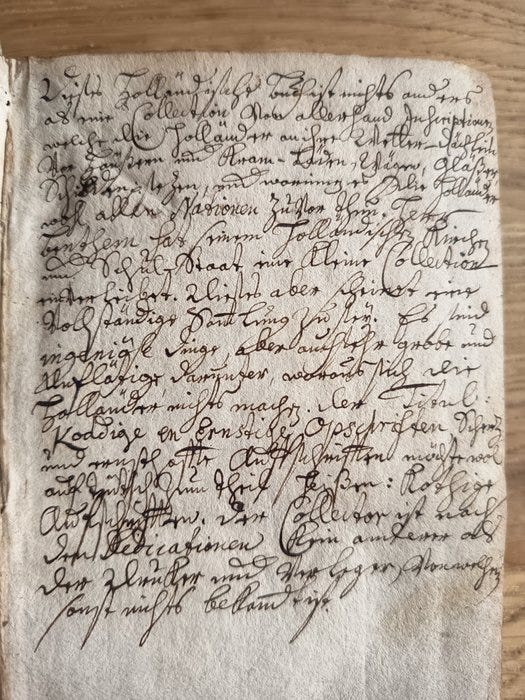 Dieses Holländische Buch ist nichts anders
als eine Collection von allerhand Inscriptionen
welche die Holländer an ihre Wetter-Dächlein
vor Häusern und Kram-Läden, Wägen, Gläser,
Schilden setzen, und worinnen es die Holländer
noch allen Nationen zuvor thun. Herr
Benthem hat seinem Holländischen Kirchen
und Schul-Staat eine kleine Collection
einverleibet. Dieses aber scheinet eine
Vollständige Sammlung zu sey. Es sind
ingeniose Dinge, aber auch sehr grobe und
Unflätige darunter, woraus sich die
Holländer nichts machen. der Titul:
Koddige en Ernstige Opschriften Schertz
und ernsthaffte Auffschrifften möchte wol
auf teütsch zum theil heißen: Kothige
Aufschrifften. der Collector ist nach
den Dedicationen kein anderer als
der Drucker und Verleger, von welchen
sonst nichts bekandt ist.